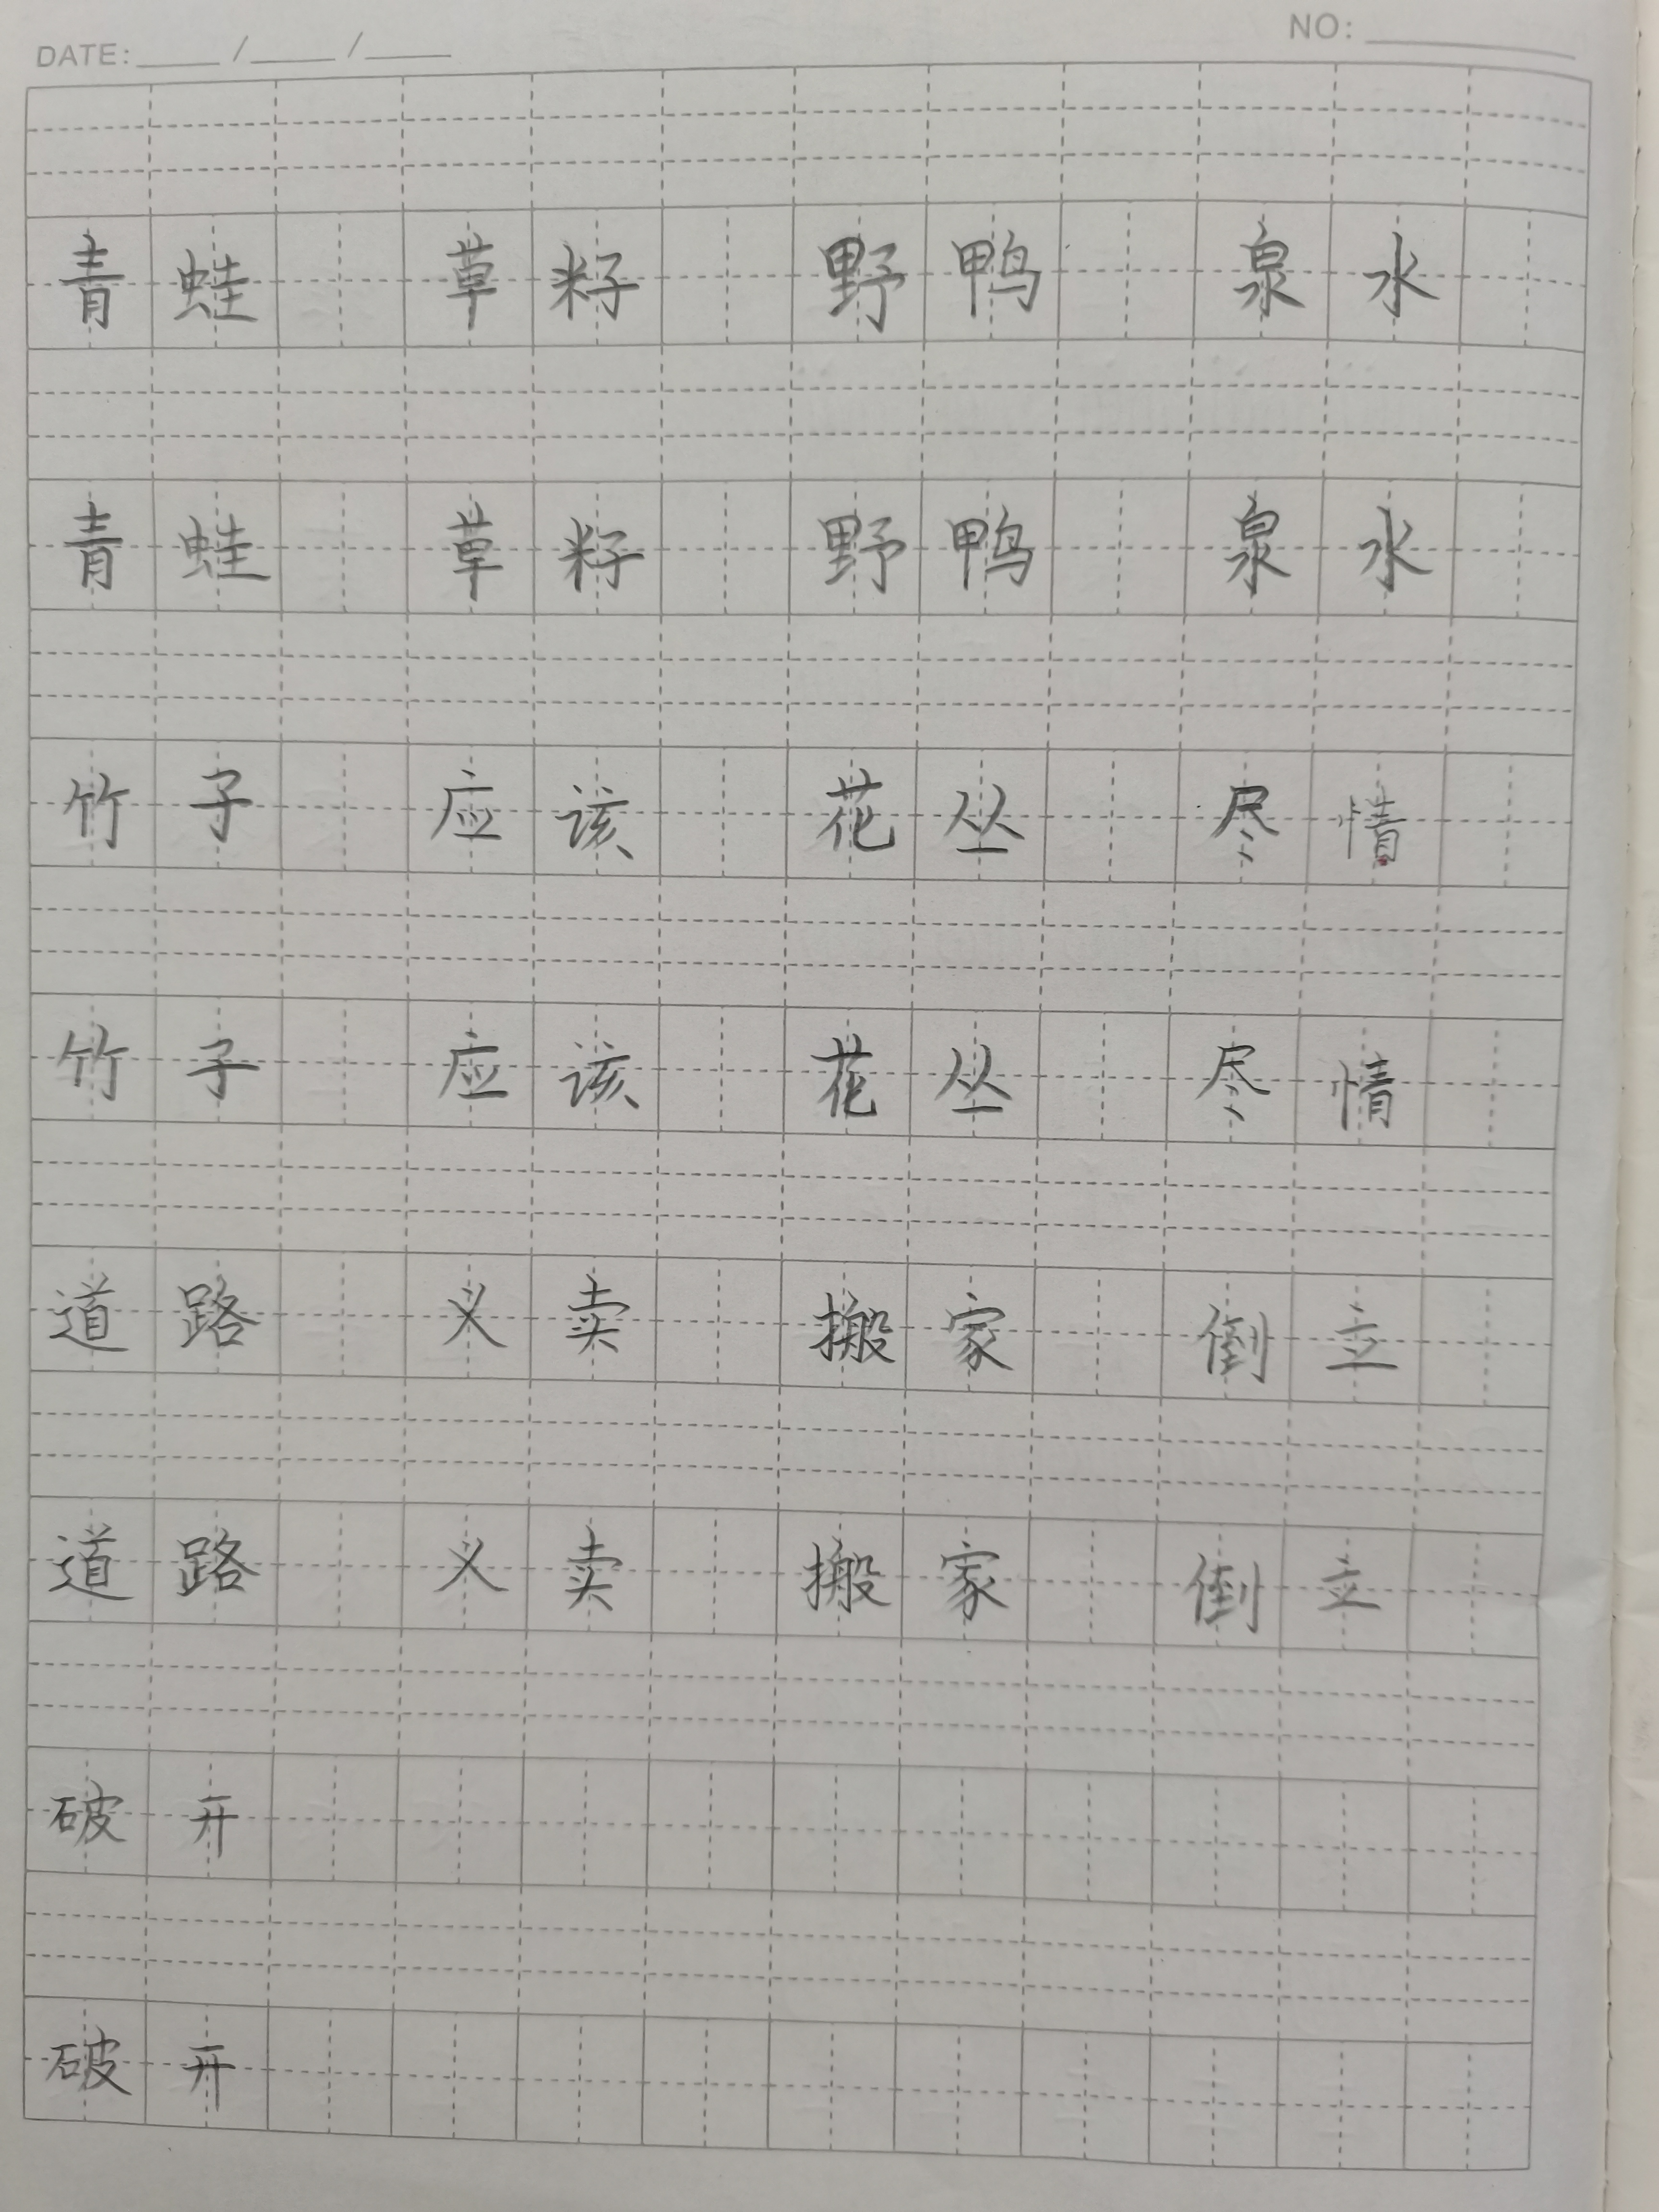 DATE: / / NO:
青蛙 草籽 野鸭 泉水
青蛙 草籽 野鸭 泉水
竹子 应该 花丛 尽情
竹子 应该 花丛 尽情
道路 义卖 搬家 倒立
道路 义卖 搬家 倒立
破开
破开